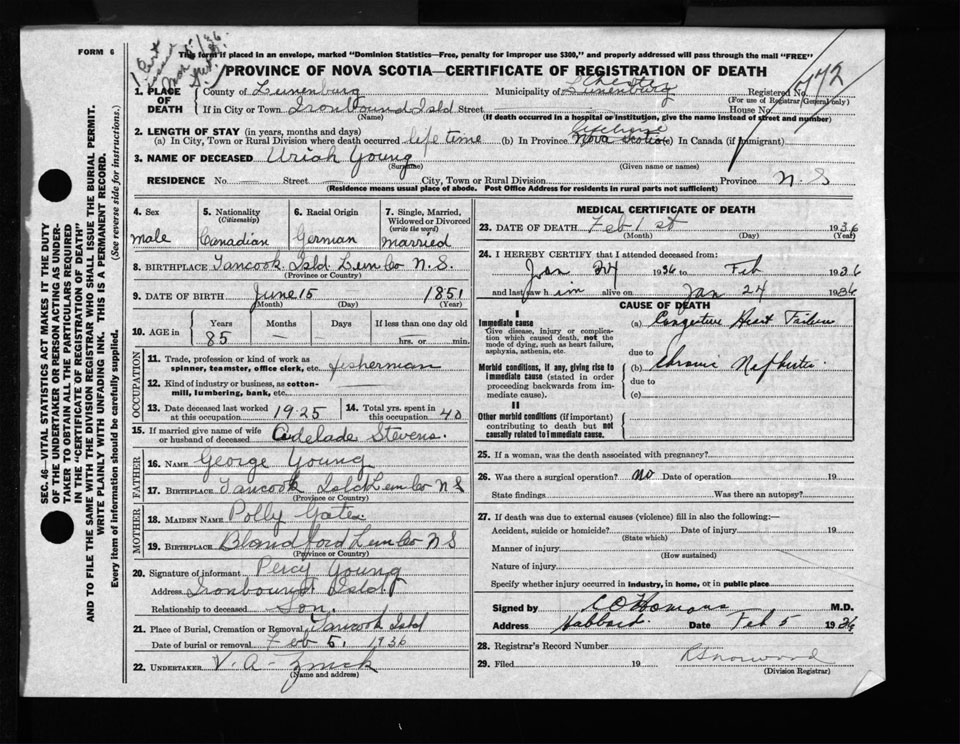 FORM 6
This form if placed in an envelope, marked "Dominion Statistics—Free, penalty for improper use $300," and properly addressed will pass through the mail "FREE"
PROVINCE OF NOVA SCOTIA—CERTIFICATE OF REGISTRATION OF DEATH
772
1. PLACE OF DEATH
County of Lunenburg Municipality of Lunenburg Chester Registered No.
(For use of Registrar General only)
If in City or Town Ironbound Isld Street House No.
(Name) (If death occurred in a hospital or institution, give the name instead of street and number)
2. LENGTH OF STAY (in years, months and days)
(a) In City, Town or Rural Division where death occurred life time (b) In Province Nova Scotia life time (c) In Canada (if immigrant)
3. NAME OF DECEASED Uriah Young
(Surname) (Given name or names)
RESIDENCE No. Street City, Town or Rural Division Province N.S
(Residence means usual place of abode. Post Office Address for residents in rural parts not sufficient)
4. Sex
male
5. Nationality
(Citizenship)
Canadian
6. Racial Origin
German
7. Single, Married, Widowed or Divorced
(write the word)
Married
8. BIRTHPLACE Tancook Isld Lun Co N.S.
(Province or Country)
9. DATE OF BIRTH June 15 1851
(Month) (Day) (Year)
10. AGE in Years Months Days If less than one day old
85 — — hrs. or min.
OCCUPATION
11. Trade, profession or kind of work as spinner, teamster, office clerk, etc. fisherman
12. Kind of industry or business, as cotton-mill, lumbering, bank, etc.
13. Date deceased last worked at this occupation 1925
14. Total yrs. spent in this occupation 40
15. If married give name of wife or husband of deceased Adelade Stevens.
FATHER
16. NAME George Young
17. BIRTHPLACE Tancook Isld Lun Co N S
(Province or Country)
MOTHER
18. MAIDEN NAME Polly Gates
19. BIRTHPLACE Blandford Lun Co N S
(Province or Country)
20. Signature of informant Percy Young
Address Ironbound Isld
Relationship to deceased Son.
21. Place of Burial, Cremation or Removal Tancook Isld
Date of burial or removal Feb 5, 1936
22. UNDERTAKER V. A. Zinck
(Name and address)
MEDICAL CERTIFICATE OF DEATH
23. DATE OF DEATH Feb 1st 1936
(Month) (Day) (Year)
24. I HEREBY CERTIFY that I attended deceased from:
Jan 1936 to Feb 1936
and last saw him alive on Jan 24 1936
CAUSE OF DEATH
I
Immediate cause
Give disease, injury or complication which caused death, not the mode of dying, such as heart failure, asphyxia, asthenia, etc.
(a) Congestive Heart Failure
due to
Morbid conditions, if any, giving rise to immediate cause (stated in order proceeding backwards from immediate cause).
(b) Chronic Nephritis
due to
(c)
II
Other morbid conditions (if important) contributing to death but not causally related to immediate cause.
25. If a woman, was the death associated with pregnancy?
26. Was there a surgical operation? No Date of operation 19
State findings Was there an autopsy?
27. If death was due to external causes (violence) fill in also the following:—
Accident, suicide or homicide? Date of injury 19
(State which)
Manner of injury
(How sustained)
Nature of injury
Specify whether injury occurred in industry, in home, or in public place
Signed by C O Homans M.D.
Address Hubbard Date Feb 5 1936
28. Registrar's Record Number
29. Filed 19
(Division Registrar)
SEC. 46—VITAL STATISTICS ACT MAKES IT THE DUTY
OF THE UNDERTAKER OR PERSON ACTING AS UNDER-
TAKER TO OBTAIN ALL THE PARTICULARS REQUIRED
IN THE "CERTIFICATE OF REGISTRATION OF DEATH"
AND TO FILE THE SAME WITH THE DIVISION REGISTRAR WHO SHALL ISSUE THE BURIAL PERMIT.
WRITE PLAINLY WITH UNFADING INK. THIS IS A PERMANENT RECORD.
Every item of information should be carefully supplied. (See reverse side for instructions.)